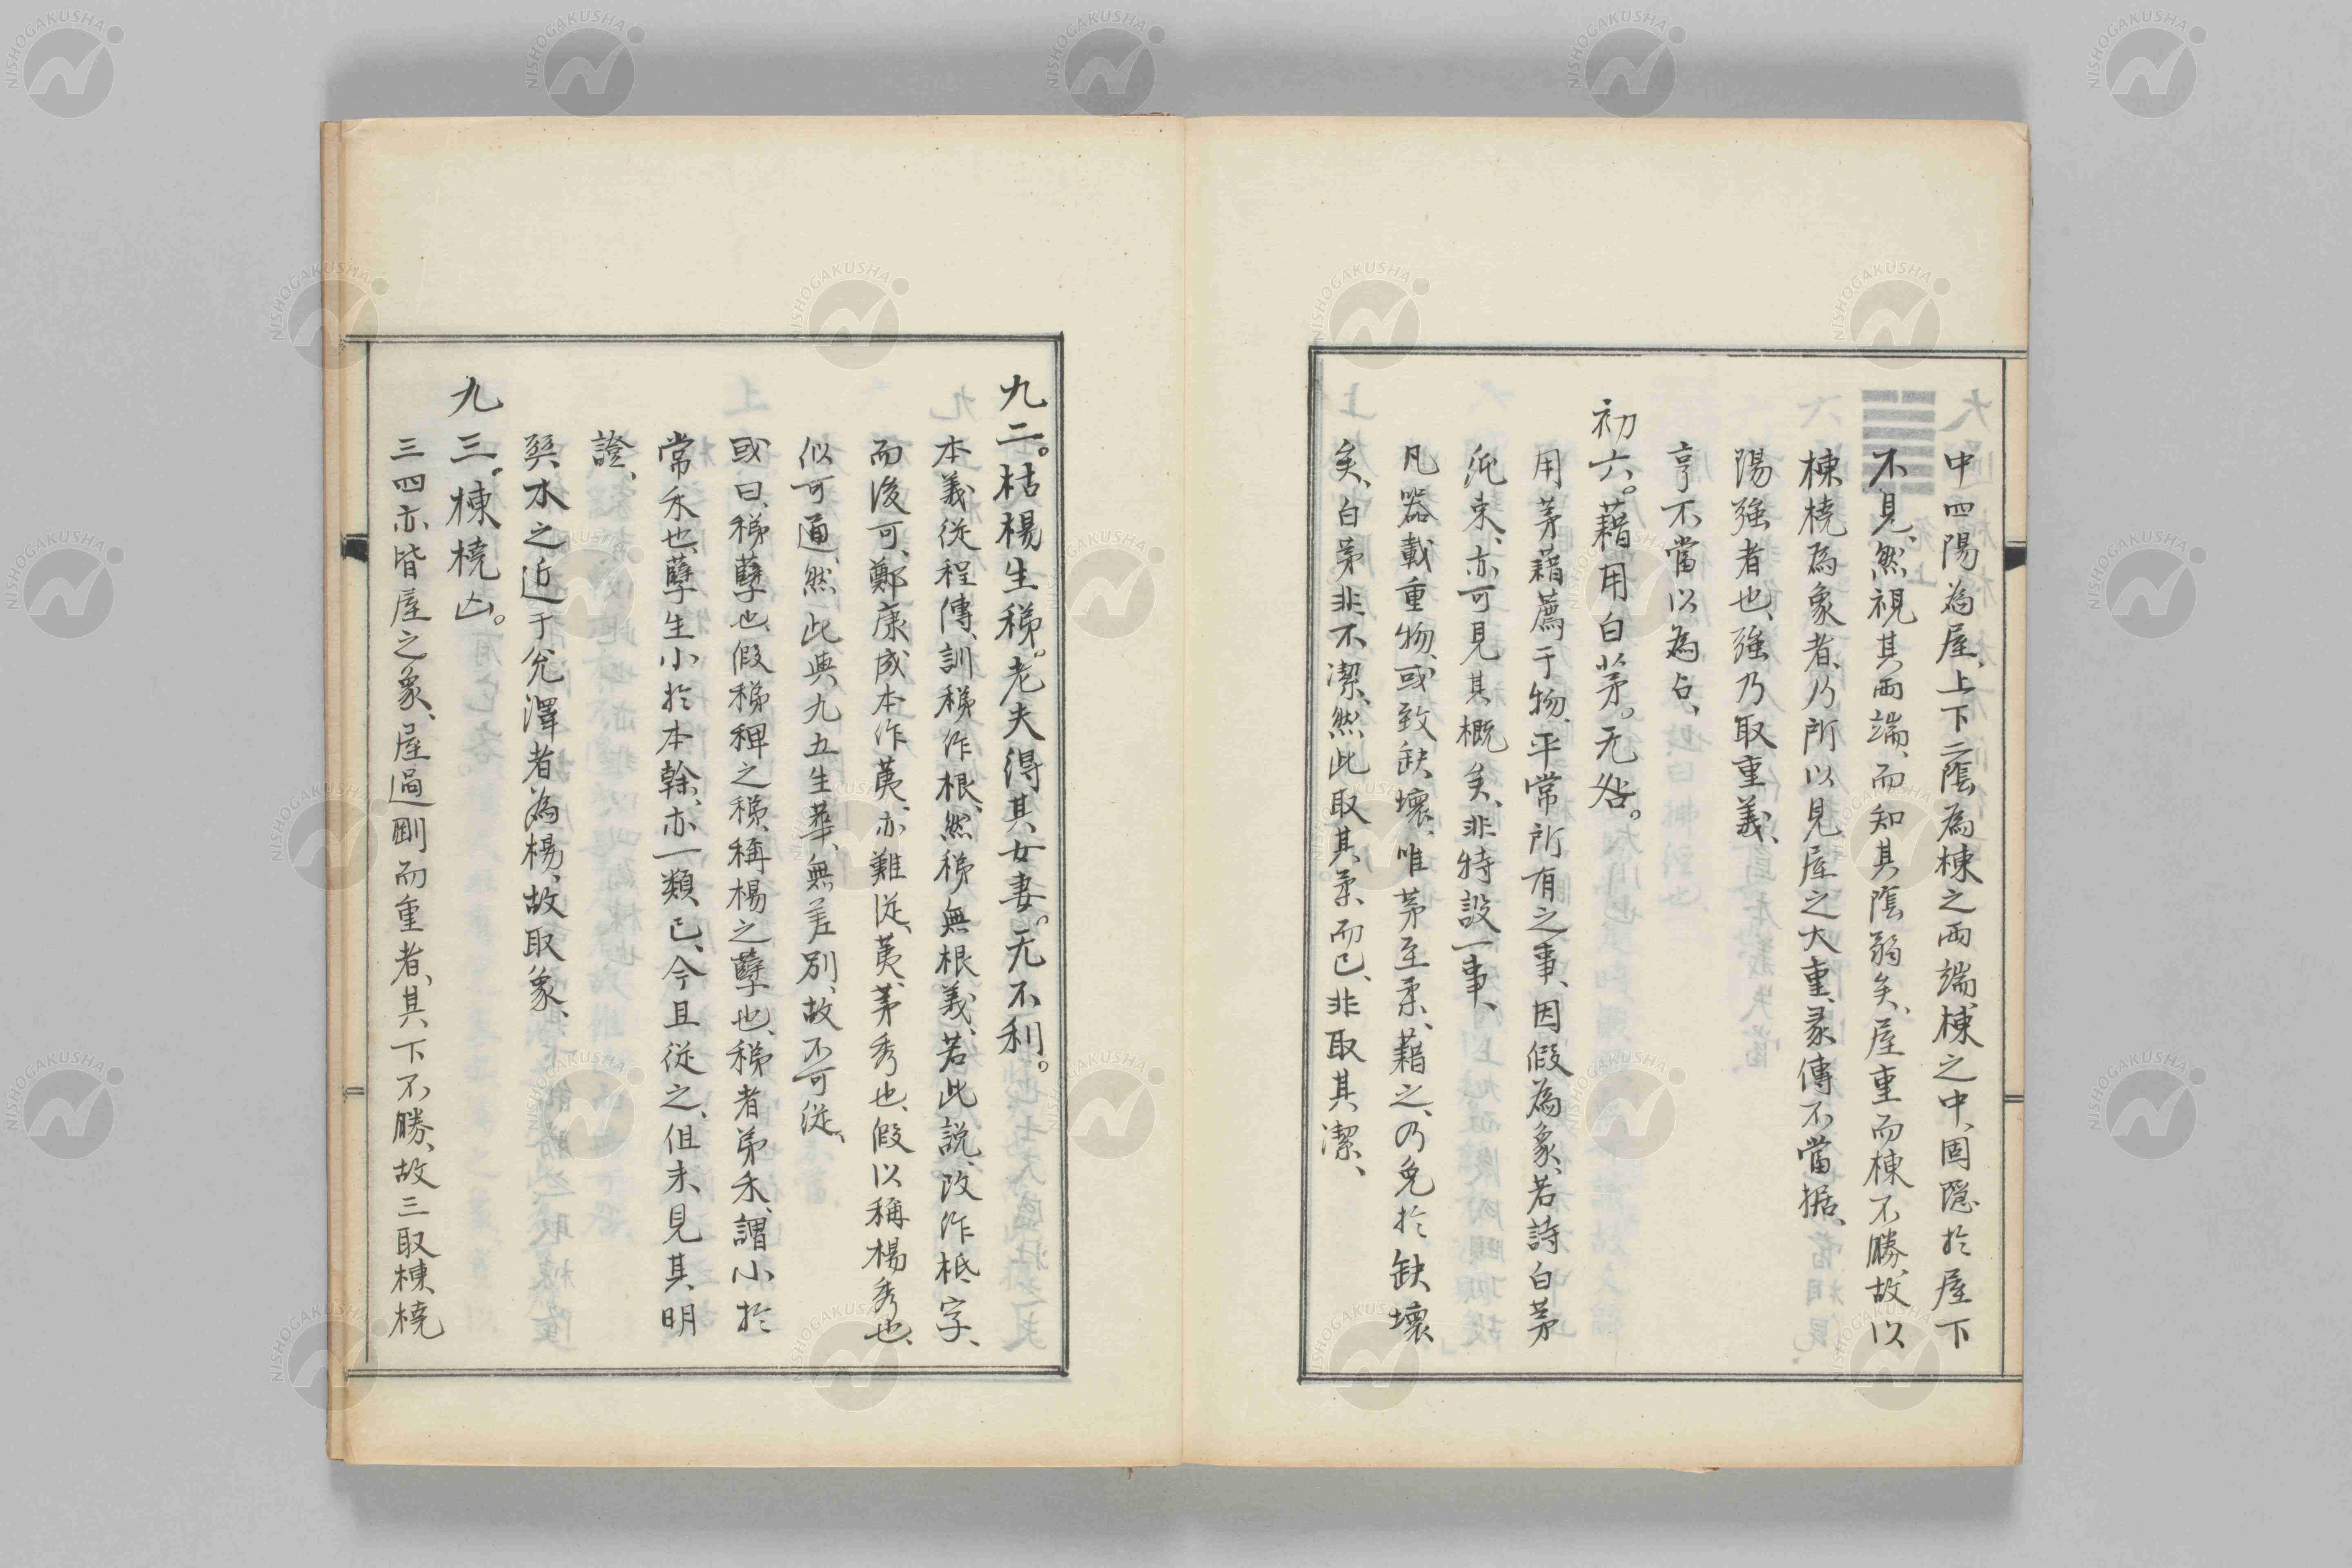 中四陽為屋、上下二陰為棟之両端、棟之中、固隠於屋下
不見、然視其両端、而知其陰弱矣、屋重而棟不勝、故以
棟橈為象者、乃所以見屋之大重、彖傳不當据、
陽強者也、強乃取重義、
亨不當以為占、
初六。藉用白茅。无咎。
用茅藉薦于物、平常所有之事、因假為象、若詩白茅
純束、亦可見其概矣、非特設一事、
凡器載重物、或致缺壞、唯茅至柔、藉之、乃免於缺壞
矣、白茅非不潔、然此取其柔而已、非取其潔、
九二。枯楊生稊。老夫得其女妻。无不利。
本義從程傳、訓稊作根、然稊無根義、若此説、改作柢字、
而後可、鄭康成本作荑、亦難従、荑、茅秀也、假以稱楊秀也、
似可通、然此與九五生華、無差別、故不可従、
或曰、稊、孽也、假稊稗之稊、稱楊之孽也、稊者弟禾、謂小於
常禾也、孽生小於本幹、亦一類已、今且従之、但未見其明
證、
巽木之近于兌澤者為楊、故取象、
九三。棟橈凶。
三四亦皆屋之象、屋過剛而重者、其下不勝、故三取棟橈
NISHOGAKUSHA